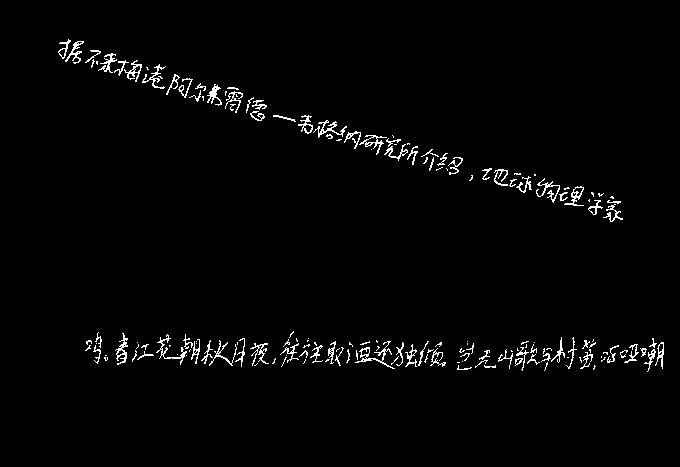 据不来梅港阿尔弗雷德一韦格纳研究所介绍，地球物理学家
鸣。春江花朝秋月夜，往往取酒还独倾。岂无山歌与村笛，呕哑嘲